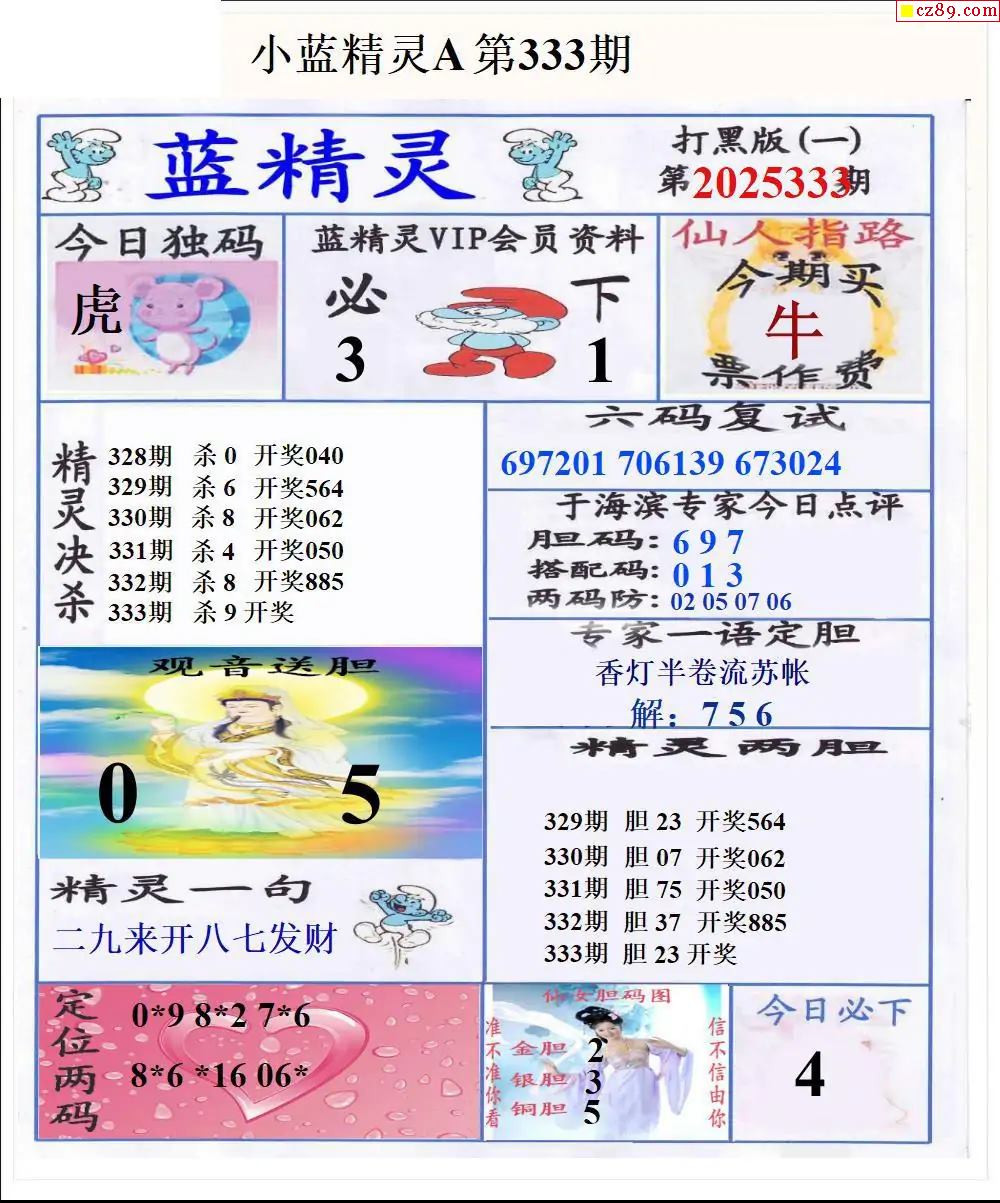 cz89.com
小蓝精灵A 第333期
蓝精灵
打黑版(一)
第2025333期
今日独码
虎
蓝精灵VIP会员资料
必 下
3 1
仙人指路
今期买
牛
票作费
精灵决杀
328期 杀 0 开奖040
329期 杀 6 开奖564
330期 杀 8 开奖062
331期 杀 4 开奖050
332期 杀 8 开奖885
333期 杀 9 开奖
六码复试
697201 706139 673024
于海滨专家今日点评
胆码: 6 9 7
搭配码: 0 1 3
两码防: 02 05 07 06
专家一语定胆
香灯半卷流苏帐
解: 7 5 6
观音送胆
0 5
精灵两胆
329期 胆 23 开奖564
330期 胆 07 开奖062
331期 胆 75 开奖050
332期 胆 37 开奖885
333期 胆 23 开奖
精灵一句
二九来开八七发财
定位两码
0*9 8*2 7*6
8*6 *16 06*
仙女胆码图
准不准你看
金胆 2
银胆 3
铜胆 5
信不信由你
今日必下
4